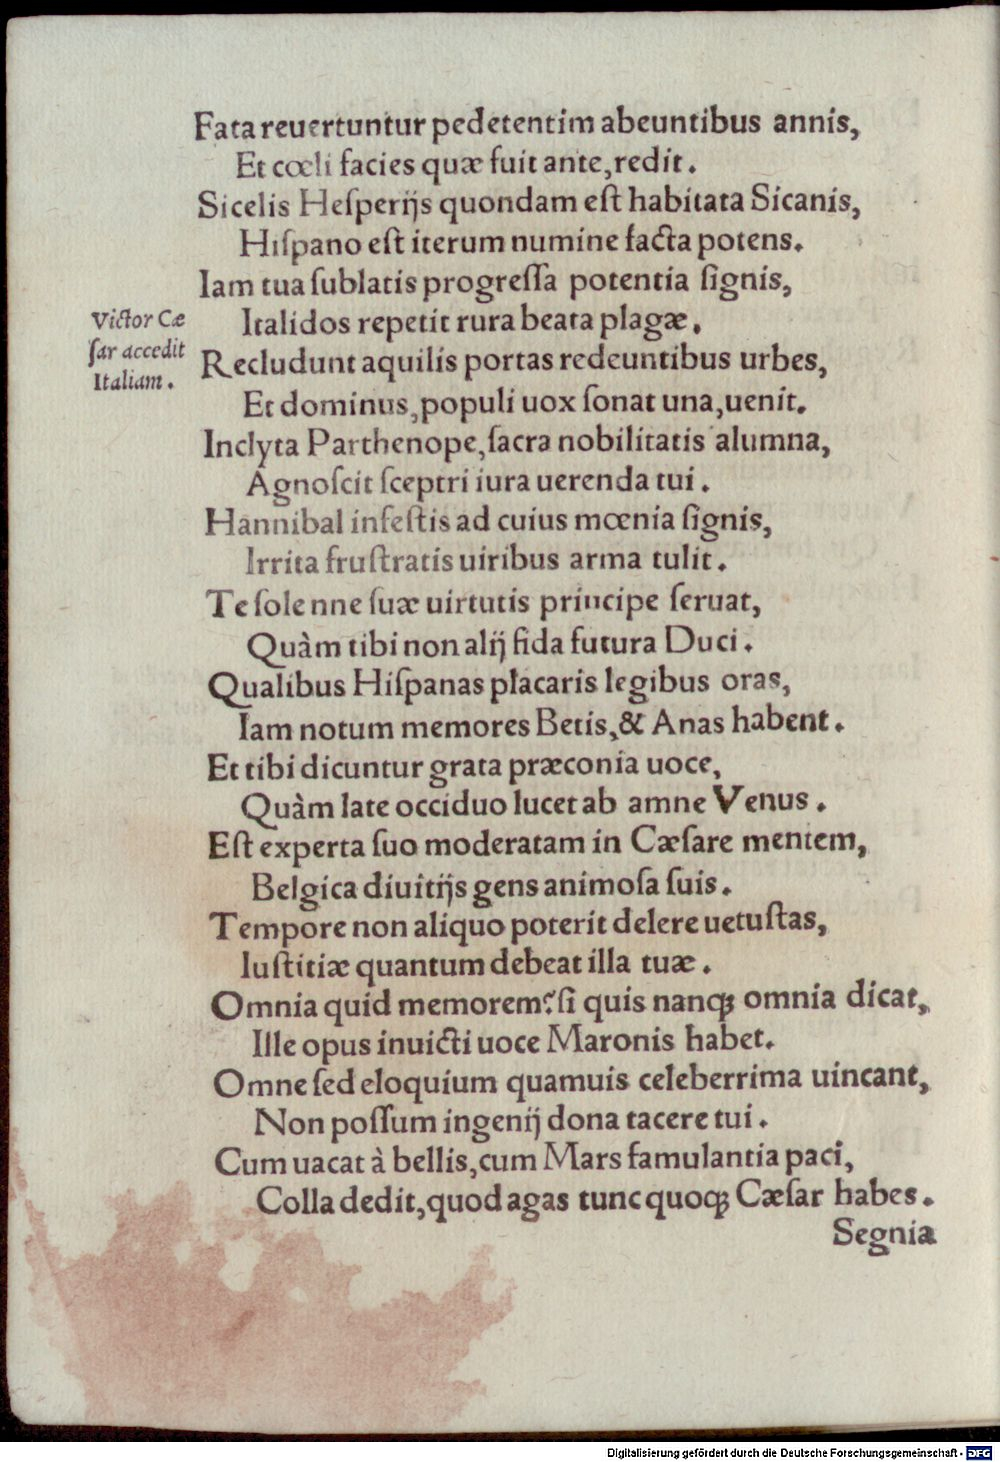 Fata reuertuntur pedetentim abeuntibus annis,
Et cœli facies quæ fuit ante, redit.
Sicelis Heſperijs quondam eſt habitata Sicanis,
Hiſpano eſt iterum numine facta potens.
Iam tua ſublatis progreſſa potentia ſignis,
Italidos repetit rura beata plagæ.
Victor Cæ
ſar accedit
Italiam.
Recludunt aquilis portas redeuntibus urbes,
Et dominus, populi uox ſonat una, uenit.
Inclyta Parthenope, ſacra nobilitatis alumna,
Agnoſcit ſceptri iura uerenda tui.
Hannibal infeſtis ad cuius mœnia ſignis,
Irrita fruſtratis uiribus arma tulit.
Te ſolenne ſuæ uirtutis principe ſeruat,
Quàm tibi non alij fida futura Duci.
Qualibus Hiſpanas placaris legibus oras,
Iam notum memores Betis, & Anas habent.
Et tibi dicuntur grata præconia uoce,
Quàm late occiduo lucet ab amne Venus.
Eſt experta ſuo moderatam in Cæſare mentem,
Belgica diuitijs gens animoſa ſuis.
Tempore non aliquo poterit delere uetuſtas,
Iuſtitiæ quantum debeat illa tuæ.
Omnia quid memorem? ſi quis nanqꝫ omnia dicat,
Ille opus inuicti uoce Maronis habet.
Omne ſed eloquium quamuis celeberrima uincant,
Non poſſum ingenij dona tacere tui.
Cum uacat à bellis, cum Mars famulantia paci,
Colla dedit, quod agas tunc quoqꝫ Cæſar habes.
Segnia
Digitalisierung gefördert durch die Deutsche Forschungsgemeinschaft - DFG